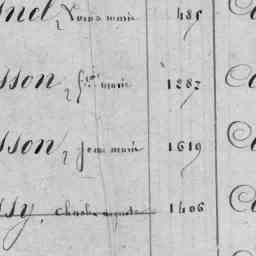 snel, Louis marie 485
sson, fçois marie 1287
sson, Jean marie 1619
ssy, Charles auguste 1406